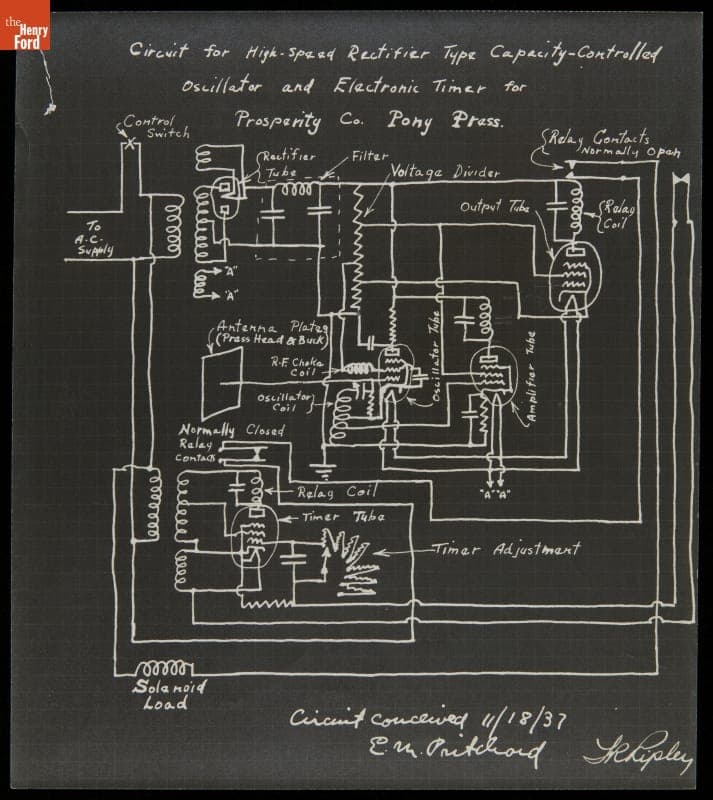 the
Henry
Ford
Circuit for High-Speed Rectifier Type Capacity-Controlled
Oscillator and Electronic Timer for
Prosperity Co. Pony Press.
Control
Switch
Relay Contacts
Normally Open
Rectifier
Tube
Filter
Voltage Divider
Output Tube
Relay
Coil
To
A.C.
Supply
"A"
"A"
Antenna Plates
(Press Head & Buck)
R.F. Choke
Coil
Oscillator Tube
Amplifier Tube
Oscillator
Coil
Normally Closed
Relay
Contacts
"A" "A"
Relay Coil
Timer Tube
Timer Adjustment
Solenoid
Load
Circuit conceived 11/18/37
E. M. Pritchard
Ripley